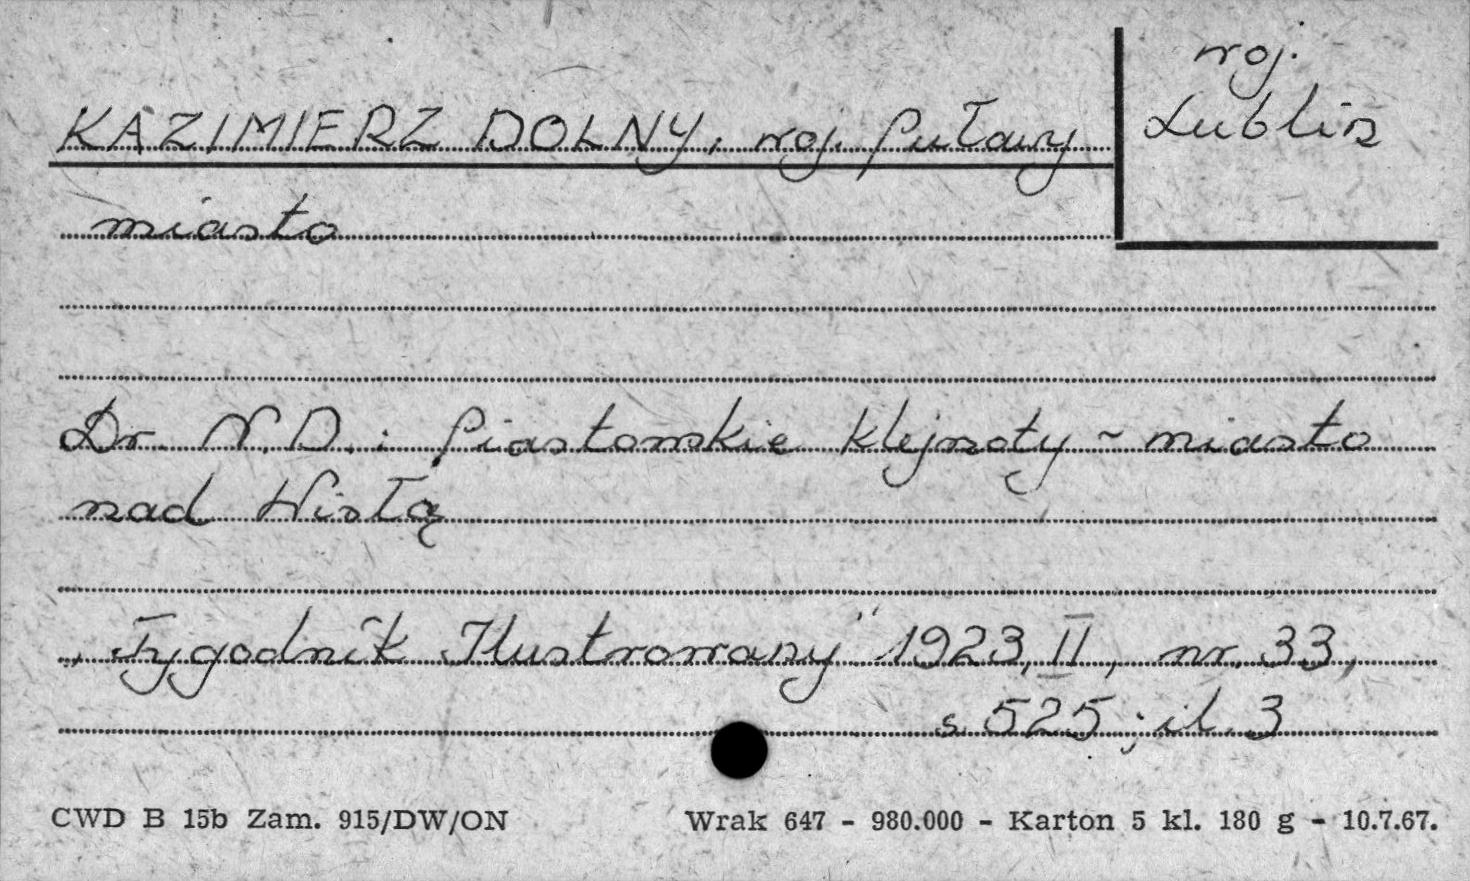 woj.
Lublin
KAZIMIERZ DOLNY, woj. Puławy
miasto
Dr. N.D.: Piastowskie klejnoty - miasto
nad Wisłą
„Tygodnik Ilustrowany" 1923, II, nr. 33,
s. 525; il. 3
CWD B 15b Zam. 915/DW/ON
Wrak 647 - 980.000 - Karton 5 kl. 180 g - 10.7.67.